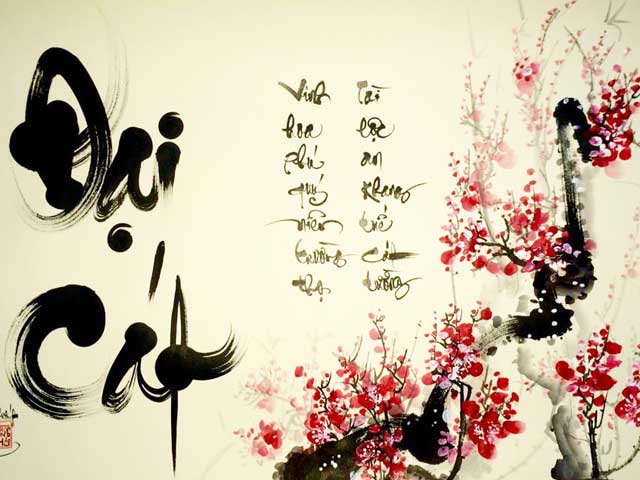 Đại
Cát
Vinh hoa phú quý niên trường thọ
Tài lộc an khang thế cát tường